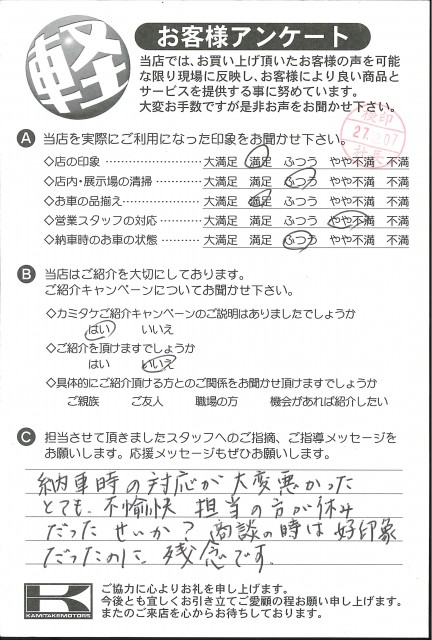 軽
お客様アンケート
当店では、お買い上げ頂いたお客様の声を可能
な限り現場に反映し、お客様により良い商品と
サービスを提供する事に努めています。
大変お手数ですが是非お声をお聞かせ下さい。
検印
27. .07
A 当店を実際にご利用になった印象をお聞かせ下さい。
◇店の印象 ………………… 大満足 満足 ふつう やや不満 不満
◇店内・展示場の清掃 ………… 大満足 満足 ふつう やや不満 不満
◇お車の品揃え ……………… 大満足 満足 ふつう やや不満 不満
◇営業スタッフの対応 ………… 大満足 満足 ふつう やや不満 不満
◇納車時のお車の状態 ………… 大満足 満足 ふつう やや不満 不満
B 当店はご紹介を大切にしております。
ご紹介キャンペーンについてお聞かせ下さい。
◇カミタケご紹介キャンペーンのご説明はありましたでしょうか
はい いいえ
◇ご紹介を頂けますでしょうか
はい いいえ
◇具体的にご紹介頂ける方とのご関係をお聞かせ頂けますでしょうか
ご親族 ご友人 職場の方 機会があれば紹介したい
C 担当させて頂きましたスタッフへのご指摘、ご指導メッセージを
お願いします。応援メッセージもぜひお願いします。
納車時の対応が大変悪かった
とても、不愉快 担当の方が休み
だったせいか? 商談の時は好印象
だったのに、残念です。
K
KAMITAKEMOTORS
ご協力に心よりお礼を申し上げます。
今後とも宜しくお引き立てご愛顧の程お願い申し上げます。
またのご来店を心からお待ちしております。